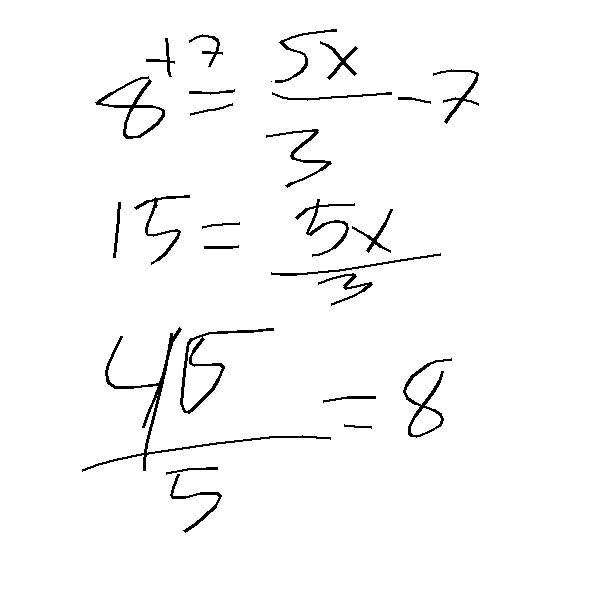 8 +7 = 5x/3 - 7
15 = 5x/3
45/5 = 8